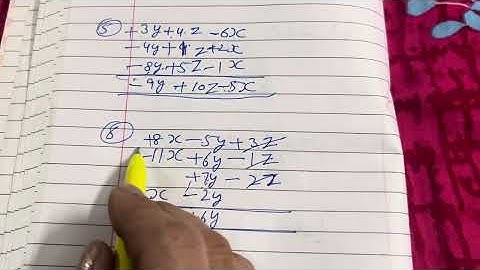 5) +3y+4z-6x
-4y+1z+2x
-8y+5z-1x
-9y+10z-5x
6) +8x-5y+3z
-11x+6y-1z
+7y-2z
x -2y
+6y